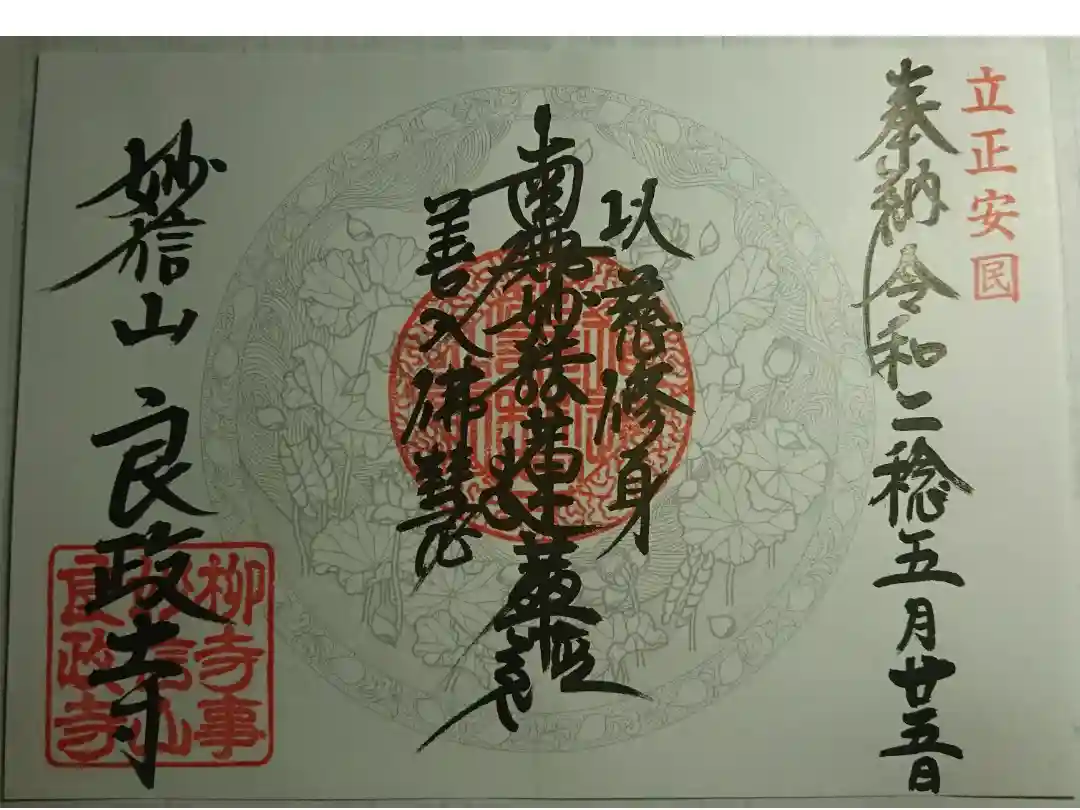 立正安国
奉納 令和二稔五月廿五日
以慈修身
南無妙法蓮華経
善入佛慧
妙信山 良政寺
柳寺事
妙信山
良政寺